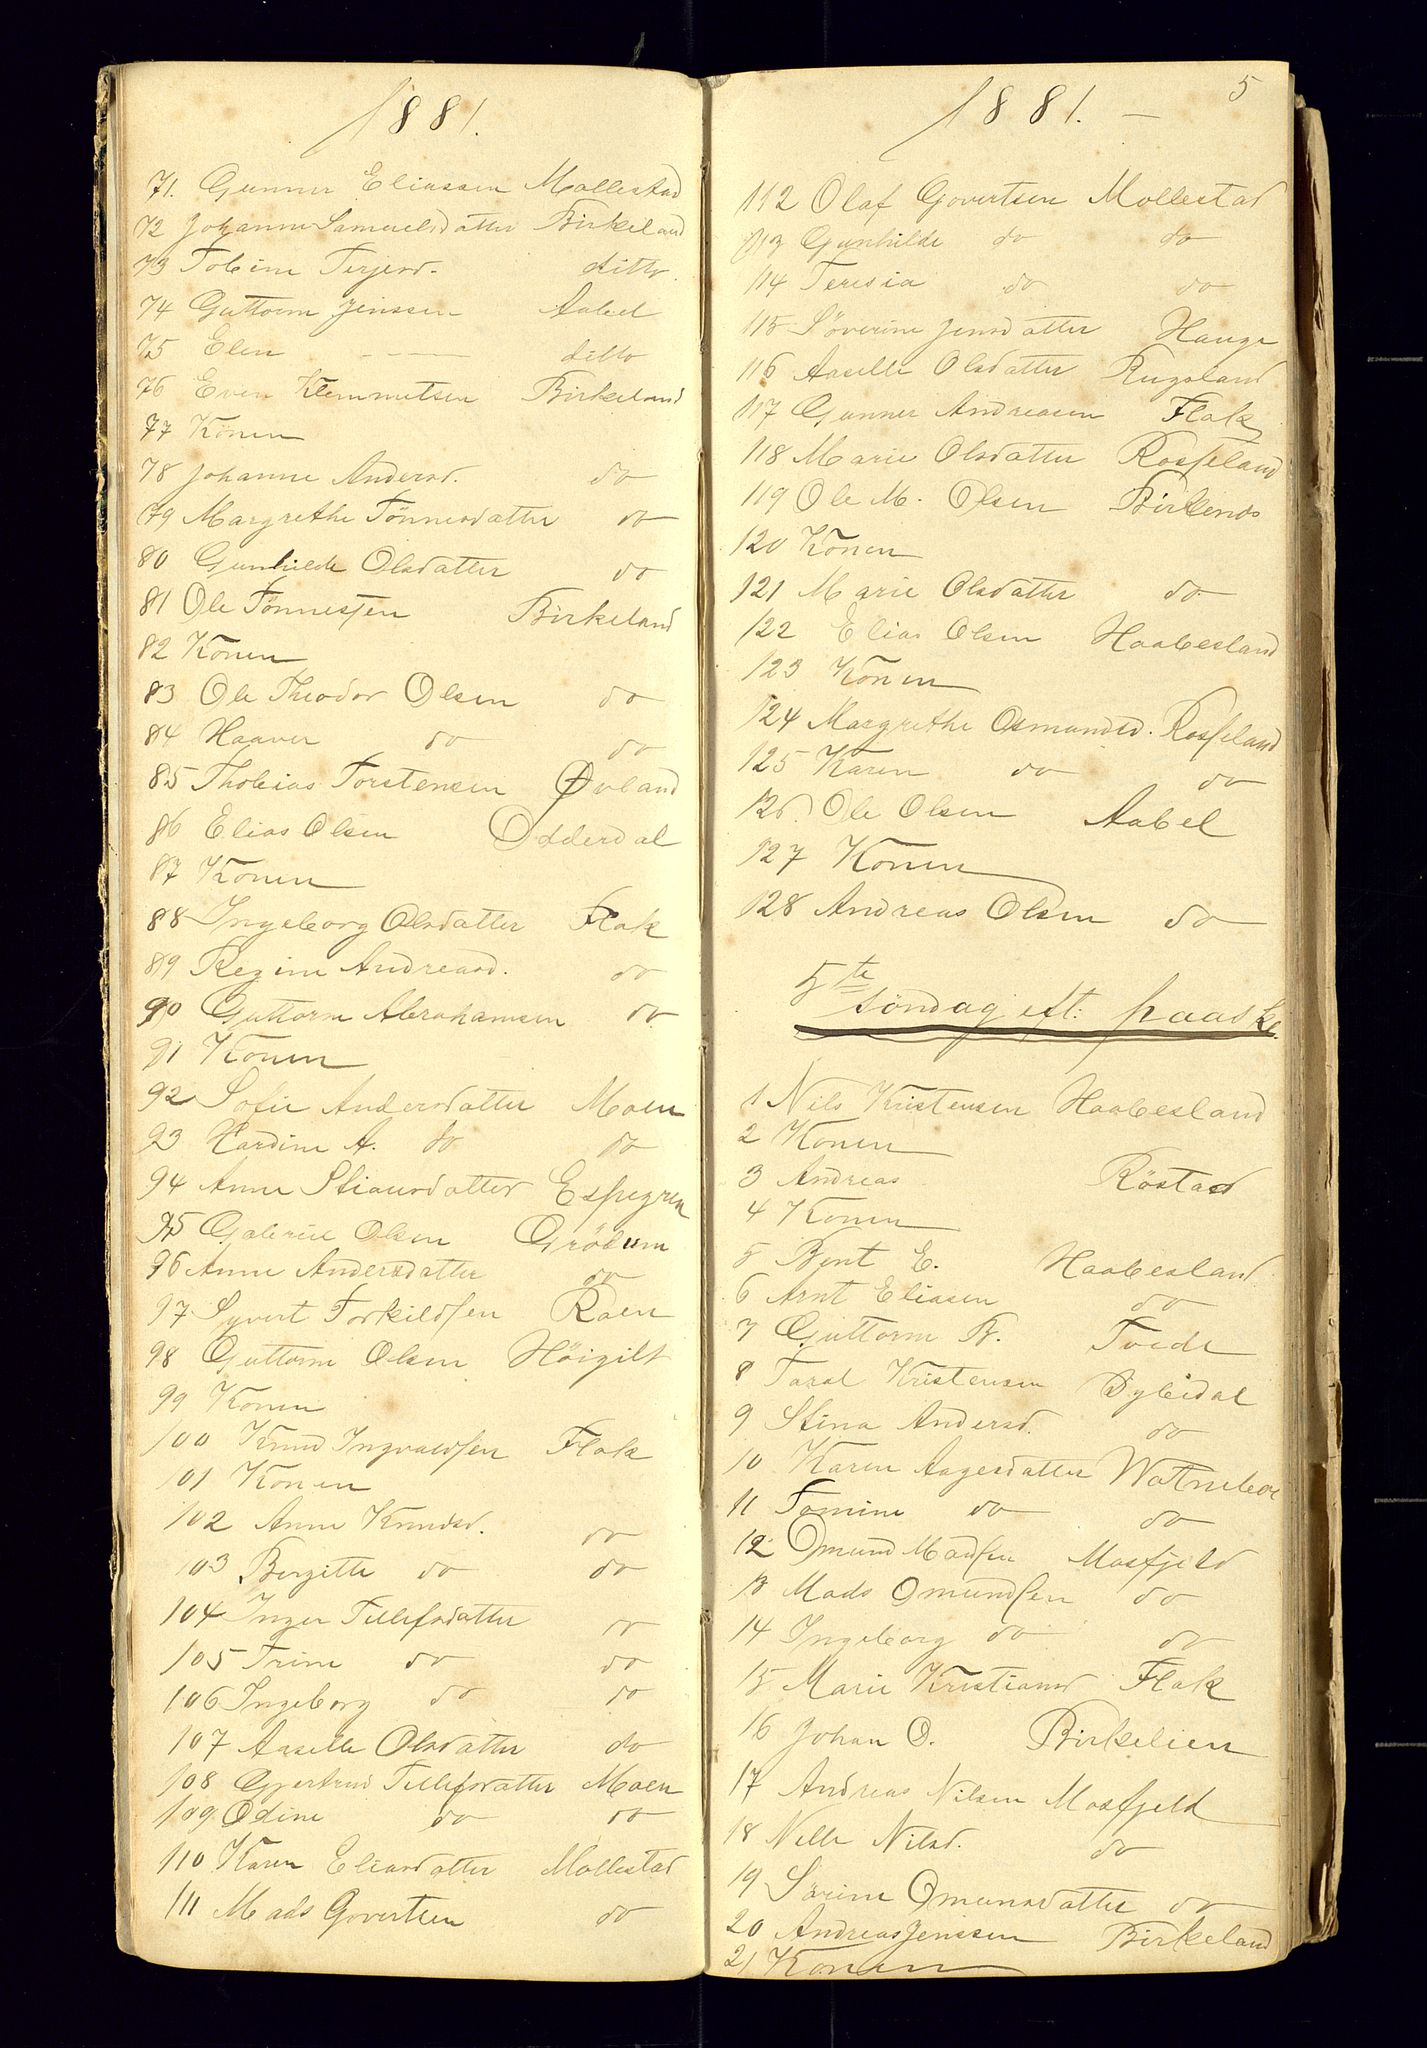 1881.
71. Gunner Eliassen Mollestad
72 Johanne Samuelsdatter Birkeland
73 Tobine Terjesd. ditto
74 Guttorm Jenssen Aabel
75 Elen - - - ditto
76 Even Klemmetsen Birkeland
77 Konen
78 Johanne Andersd. do
79 Margrethe Tönnesdatter do
80 Gunhilde Olsdatter do
81 Ole Tönnessen Birkeland
82 Konen
83 Ole Theodor Olsen do
84 Haaver do do
85 Thobias Torstensen Øvland
86 Elias Olsen Odderdal
87 Konen
88 Ingeborg Olsdatter Flak
89 Regine Andreasd. do
90 Guttorm Abrahamsen do
91 Konen
92 Sofie Andersdatter Moen
93 Hardine A. do do
94 Anne Stiansdatter Espegren
95 Gabriel Olsen Gröbum
96 Anne Andersdatter do
97 Syvert Torkildsen Raen
98 Guttorm Olsen Höigilt
99 Konen
100 Knud Ingvaldsen Flak
101 Konen
102 Anne Knudsd. do
103 Bergitte do do
104 Inger Tellefsdatter do
105 Trine do do
106 Ingeborg do do
107 Aaselle Olsdatter do
108 Gjertrud Tellefsdatter Moen
109 Odine do do
110 Karen Eliasdatter Mollestad
111 Mads Govertsen do
5
1881. —
112 Olaf Govertsen Mollestad
113 Gunhilde do do
114 Teresia do do
115 Söverine Jensdatter Hauge
116 Aaselle Olsdatter Rugsland
117 Gunner Andreasen Flak
118 Marie Olsdatter Rosseland
119 Ole M. Olsen Birkenes
120 Konen
121 Marie Olsdatter do
122 Elias Olsen Haabesland
123 Konen
124 Margrethe Osmundsd. Rosseland
125 Karen do do
126. Ole Olsen Aabel
127 Konen
128 Andreas Olsen do
5te söndag eft: paaske.
1 Nils Kristensen Haabesland
2 Konen
3 Andreas Röstad
4 Konen
5 Bent E. Haabesland
6 Arnt Eliasen do
7 Guttorm B. Tvede
8 Taral Kristensen Dybedal
9 Stina Andersd. do
10 Karen Aagesdatter Watneboe
11 Tomine do do
12 Omund Madsen Mosfjeld
13 Mads Omundsen do
14 Ingeborg do do
15 Marie Kristiansd Flak
16 Johan O. Birkelien
17 Andreas Nilsen Mosfjeld
18 Nelle Nilsd. do
19 Sörine Omunsdatter do
20 Andreas Jenssen Birkeland
21 Konen